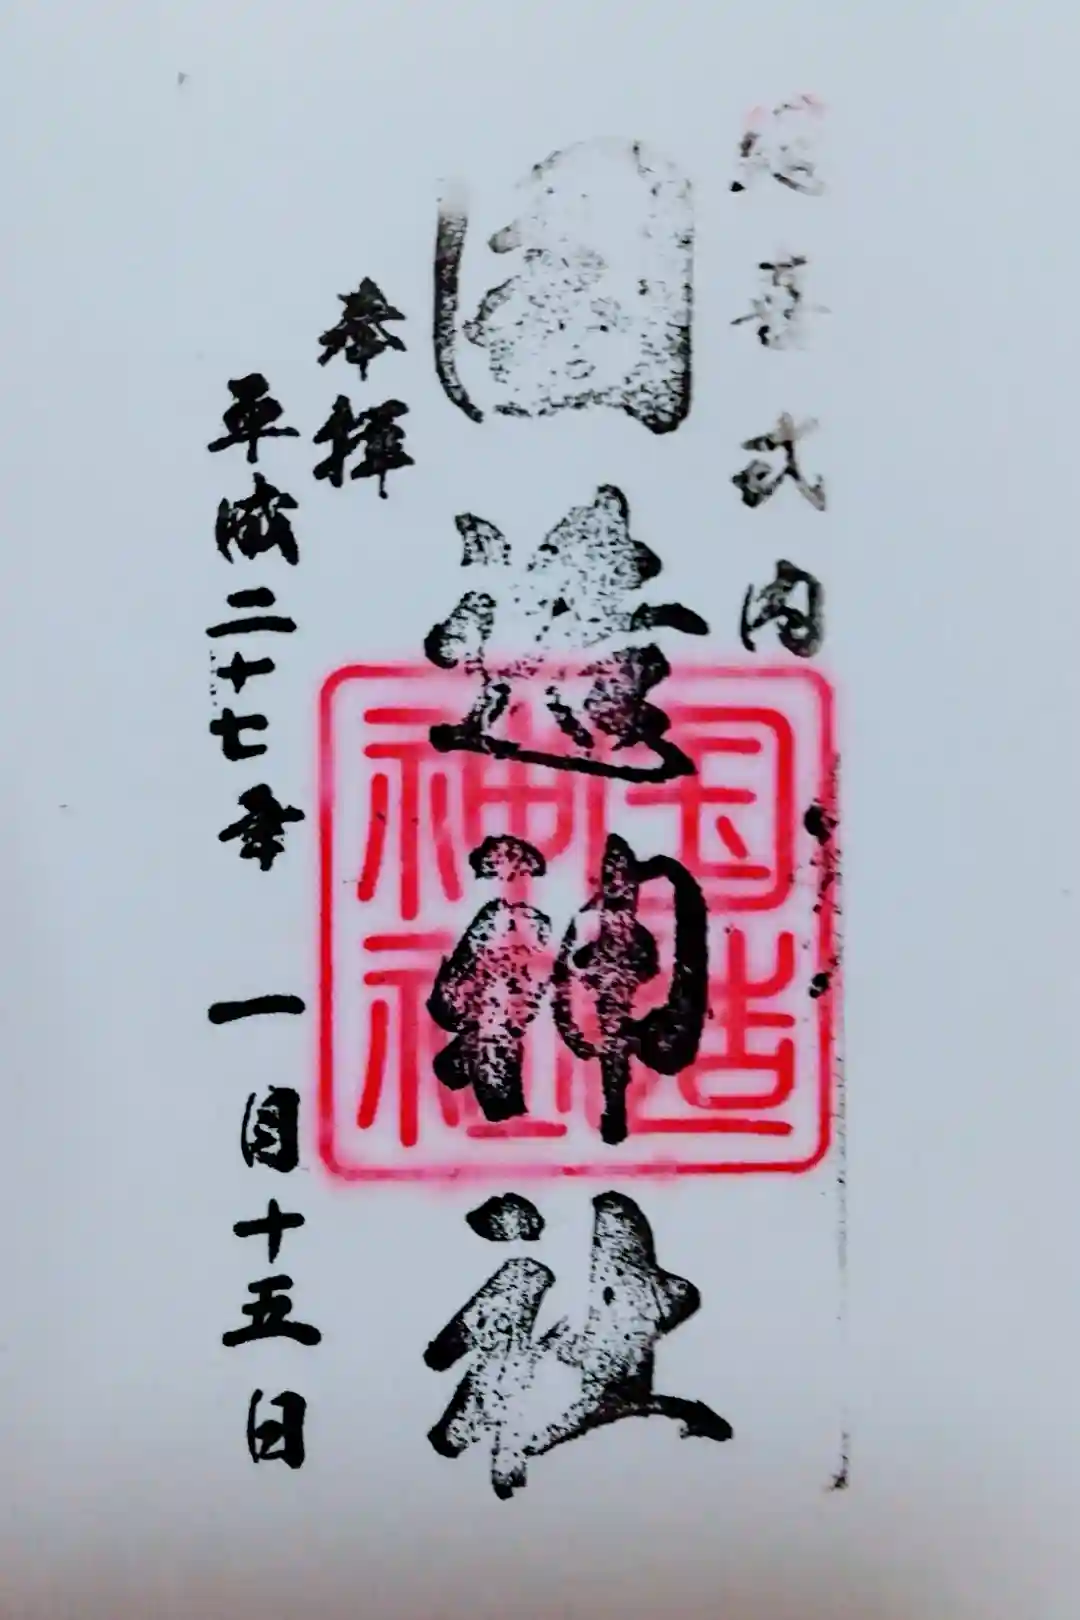 延喜式内
国造神社
奉拝
平成二十七年 一月十五日
国造
神社